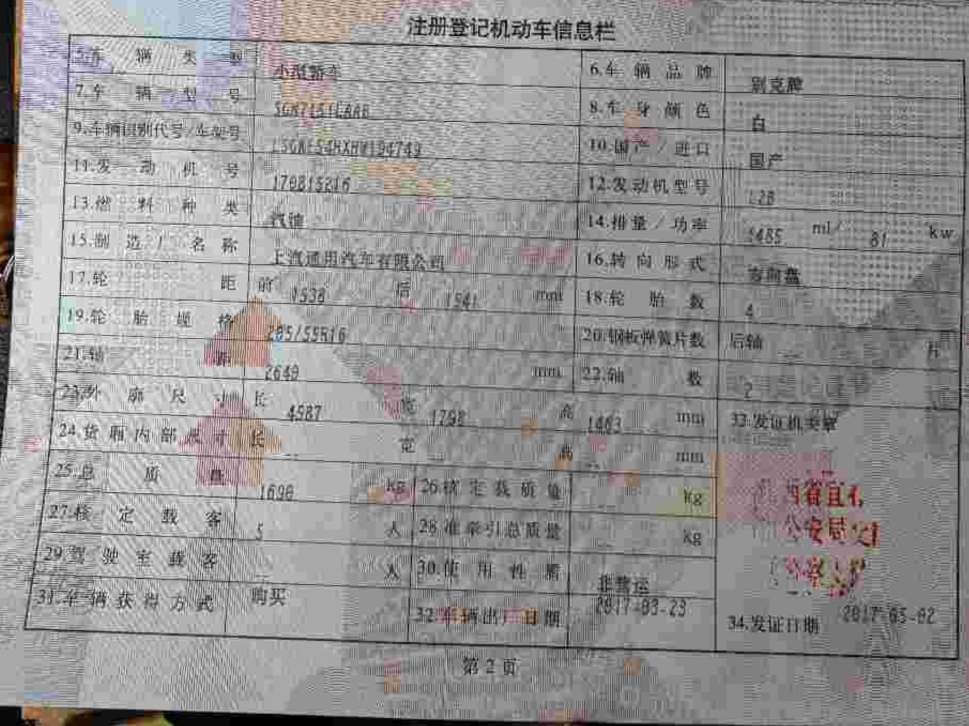 注册登记机动车信息栏
5.车辆类型 小型轿车 6.车辆品牌 别克牌
7.车辆型号 SGM7151LAAB 8.车身颜色 白
9.车辆识别代号/车架号 10.国产/进口 国产
11.发动机号 170815216 12.发动机型号 L2B
13.燃料种类 汽油 14.排量/功率 1485 ml/ 81 kw
15.制造厂名称 上汽通用汽车有限公司 16.转向形式 方向盘
17.轮距 前 1538 后 1541 mm 18.轮胎数 4
19.轮胎规格 205/55R16 20.钢板弹簧片数 后轴 -- 片
21.轴距 2649 mm 22.轴数 2
23.外廓尺寸 长 4587 宽 1798 高 1463 mm 33.发证机关章
24.货厢内部尺寸 长 -- 宽 高 -- mm
25.总质量 1690 kg 26.核定载质量 -- kg
27.核定载客 5 人 28.准牵引总质量 -- kg
29.驾驶室载客 -- 人 30.使用性质 非营运
31.车辆获得方式 购买 32.车辆出厂日期 2017-03-23 34.发证日期 2017-05-02
公安局交
第2页